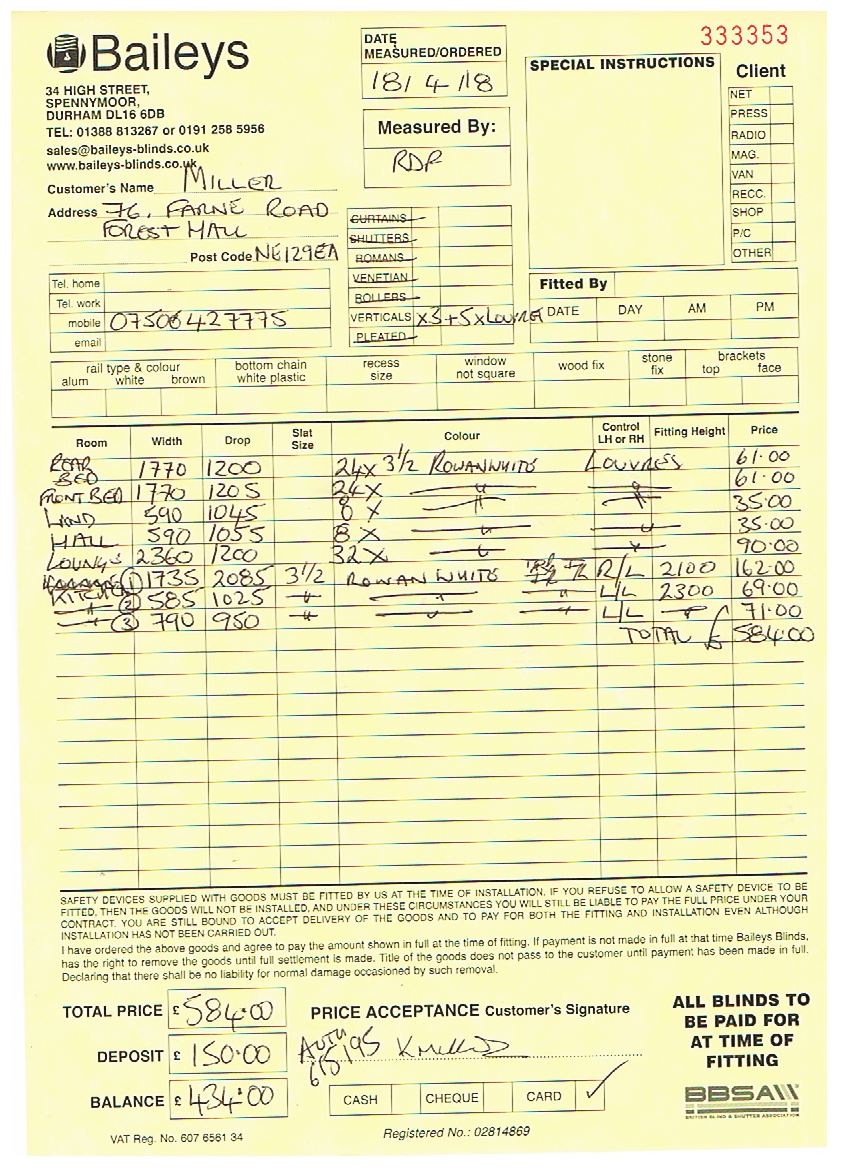 Baileys
34 HIGH STREET,
SPENNYMOOR,
DURHAM DL16 6DB
TEL: 01388 813267 or 0191 258 5956
sales@baileys-blinds.co.uk
www.baileys-blinds.co.uk
Customer's Name MILLER
Address 76, FARNE ROAD
FOREST HALL
Post Code NE129EA
Tel. home
Tel. work
mobile 07506427775
email
DATE
MEASURED/ORDERED
18/4/18
Measured By:
RDP
CURTAINS
SHUTTERS
ROMANS
VENETIAN
ROLLERS
VERTICALS x3+5xLOUVRE
PLEATED
333353
SPECIAL INSTRUCTIONS
Client
NET
PRESS
RADIO
MAG.
VAN
RECC.
SHOP
P/C
OTHER
Fitted By
DATE DAY AM PM
rail type & colour
alum white brown
bottom chain
white plastic
recess
size
window
not square
wood fix
stone
fix
brackets
top face
Room Width Drop Slat Size Colour Control LH or RH Fitting Height Price
REAR BED 1770 1200 24x 3½ ROWAN WHITE LOUVRESS 61.00
FRONT BED 1770 1205 24x " " 61.00
LAND 590 1045 8x " " 35.00
HALL 590 1055 8x " " 35.00
LOUNGE 2360 1200 32x " " 90.00
KITCHEN (1) 1735 2085 3½ ROWAN WHITE R/L 2100 162.00
" (2) 585 1025 " " " L/L 2300 69.00
" (3) 790 950 " " " L/L " 71.00
TOTAL £ 584.00
SAFETY DEVICES SUPPLIED WITH GOODS MUST BE FITTED BY US AT THE TIME OF INSTALLATION. IF YOU REFUSE TO ALLOW A SAFETY DEVICE TO BE
FITTED, THEN THE GOODS WILL NOT BE INSTALLED, AND UNDER THESE CIRCUMSTANCES YOU WILL STILL BE LIABLE TO PAY THE FULL PRICE UNDER YOUR
CONTRACT. YOU ARE STILL BOUND TO ACCEPT DELIVERY OF THE GOODS AND TO PAY FOR BOTH THE FITTING AND INSTALLATION EVEN ALTHOUGH
INSTALLATION HAS NOT BEEN CARRIED OUT.
I have ordered the above goods and agree to pay the amount shown in full at the time of fitting. If payment is not made in full at that time Baileys Blinds,
has the right to remove the goods until full settlement is made. Title of the goods does not pass to the customer until payment has been made in full.
Declaring that there shall be no liability for normal damage occasioned by such removal.
TOTAL PRICE £ 584.00
DEPOSIT £ 150.00
BALANCE £ 434.00
PRICE ACCEPTANCE Customer's Signature
AUTH
CASH CHEQUE CARD ✓
ALL BLINDS TO
BE PAID FOR
AT TIME OF
FITTING
BBSA
BRITISH BLIND & SHUTTER ASSOCIATION
VAT Reg. No. 607 6561 34
Registered No.: 02814869